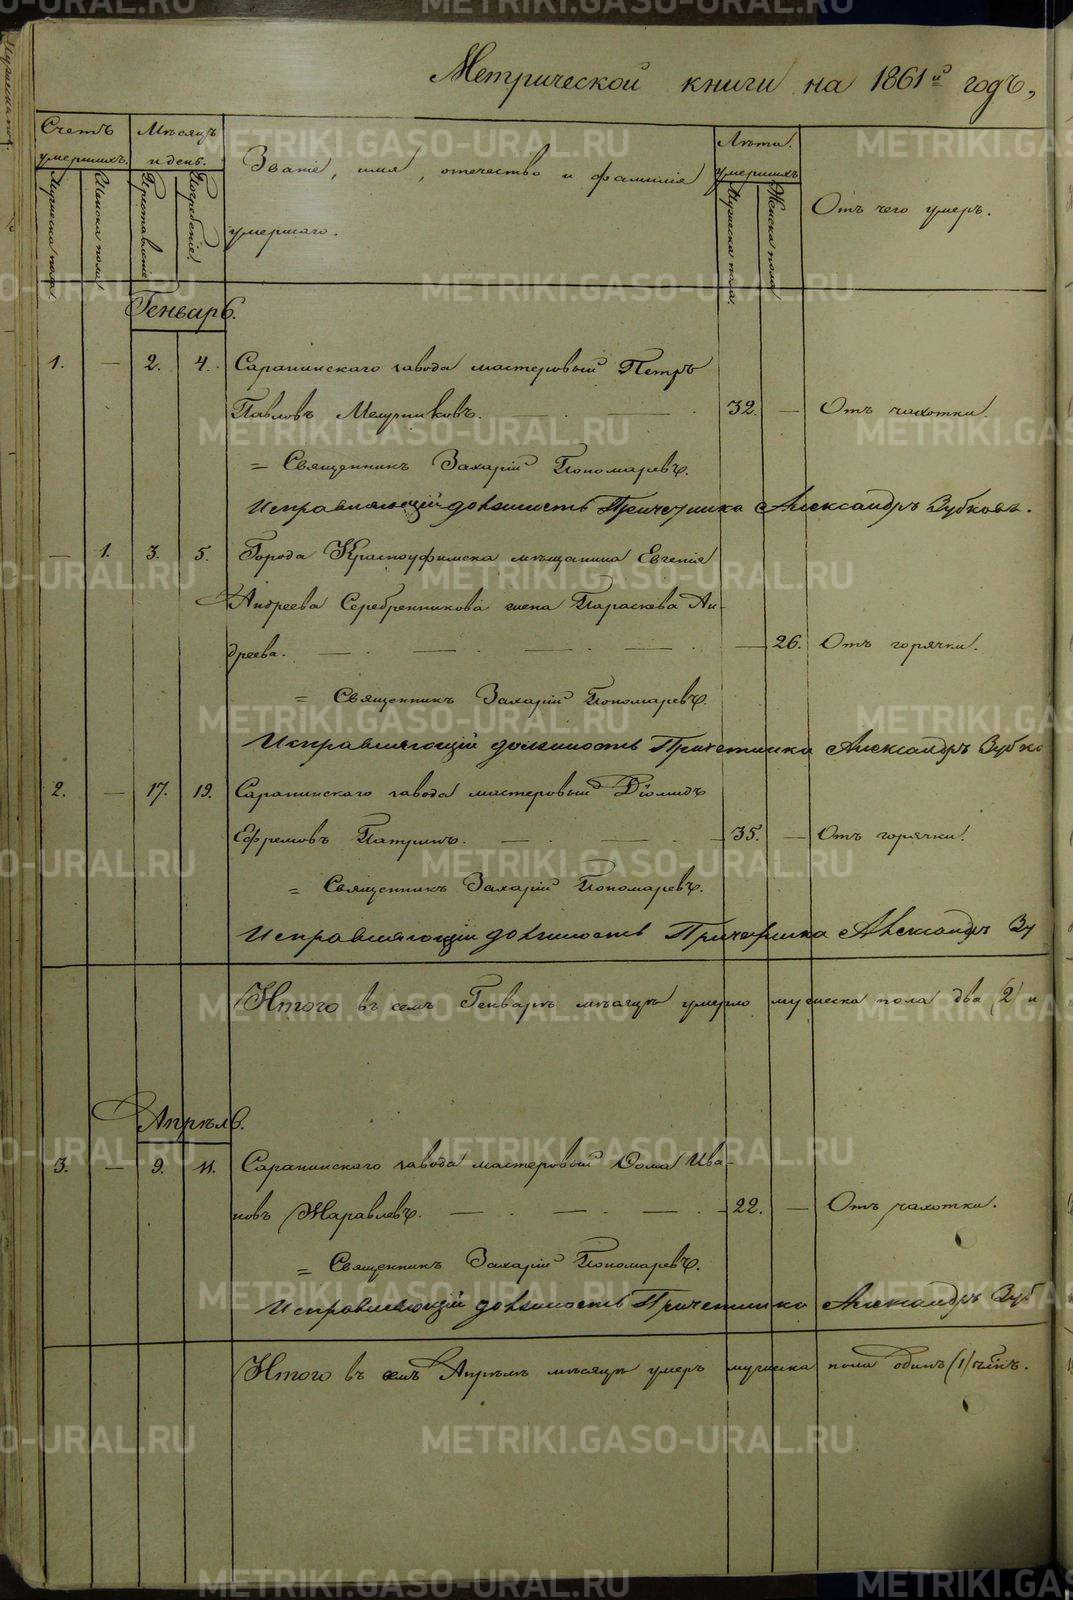 Метрической книги на 1861й годъ,
Счетъ умершихъ.
Мѣсяцъ и день.
Званіе, имя, отечество и фамилія
умершаго.
Лѣта умершихъ
Отъ чего умеръ.
Мужеска пола.
Женска пола.
Преставленіе
Погребеніе.
Мужеска пола.
Женска пола.
Генварь.
1. — 2. 4. Саранинскаго завода мастеровый Петръ
Павловъ 32. — Отъ чахотки.
= Священникъ Захарій Пономаревъ.
Исправляющій должность Причетника Александръ Зубковъ.
— 1. 3. 5. Города Красноуфимска мѣщанина Евгенія
Андреева Серебренникова жена Параскева Ан-
дреева. — 26. Отъ горячки.
= Священникъ Захарій Пономаревъ.
Исправляющій должность Причетника Александръ Зубко
2. — 17. 19. Саранинскаго завода мастеровый Діомидъ
Ефремовъ Патринъ. 35. — Отъ горячки.
= Священникъ Захарій Пономаревъ.
Исправляющій должность Причетника Александръ Зу
Итого въ семъ Генварѣ мѣсяцѣ умерло мужеска пола два (2) и
Апрѣль.
3. — 9. 11. Саранинскаго завода мастеровый Ѳома Ива-
новъ Жаравлевъ. 22. — Отъ чахотки.
= Священникъ Захарій Пономаревъ.
Исправляющій должность Причетника Александръ Зуб
Итого въ семъ Апрѣлѣ мѣсяцѣ умеръ мужеска пола одинъ (1) челвкъ.
METRIKI.GASO-URAL.RU